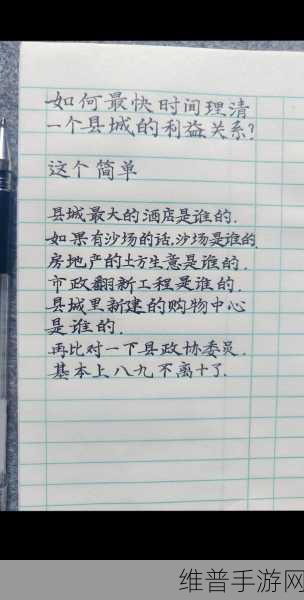 如何最快时间理清
一个县城的利益关系?
这个简单
县城最大的酒店是谁的.
如果有沙场的话,沙场是谁的
房地产的土方生意是谁的.
市政翻新工程是谁的.
县城里新建的购物中心
是谁的.
再比对一下县政协委员.
基本上八九不离十了.
维普手游网